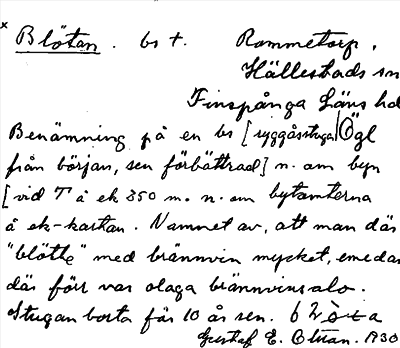 x Blötan. bs †. Rommetorp,
Hällestads sn
Finspånga Läns hd
Ögl
Benämning på en bs [ryggåsstuga
från början, sen förbättrad] n. om byn
[vid T å ek 350 m. n. om bytomterna
å ek-kartan. Namnet av, att man där
"blötte" med brännvin mycket, emedan
där förr var olaga brännvinsalo.
Stugan borta för 10 år sen.
Gustaf E. Olsson. 1930